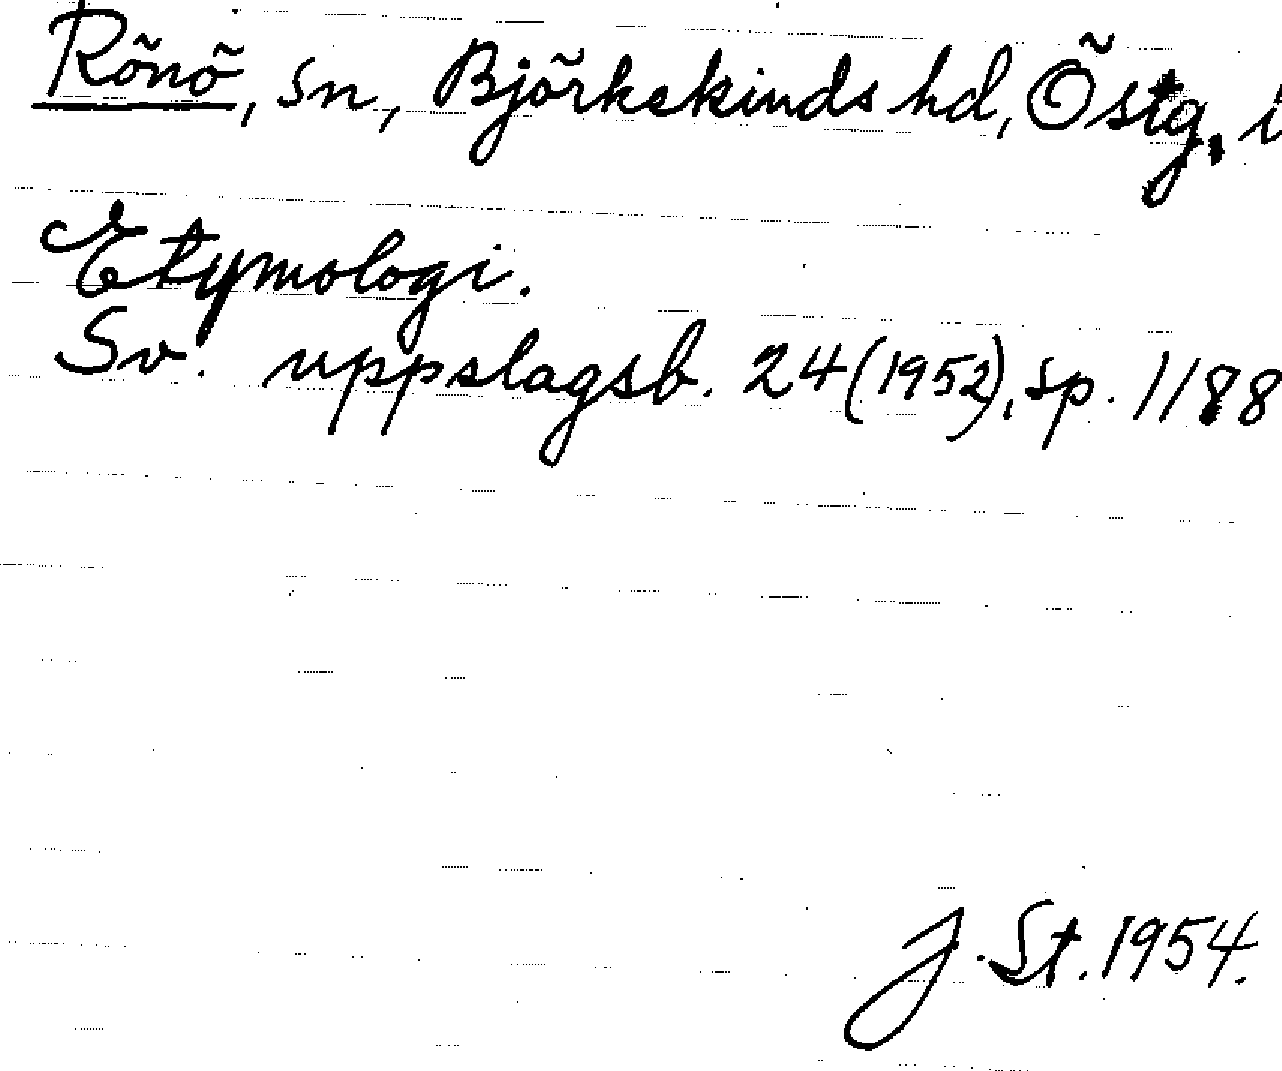 Rönö, sn, Björkekinds hd, Östg.
Etymologi.
Sv. uppslagsb. 24 (1952), sp. 1188
J. St. 1954.